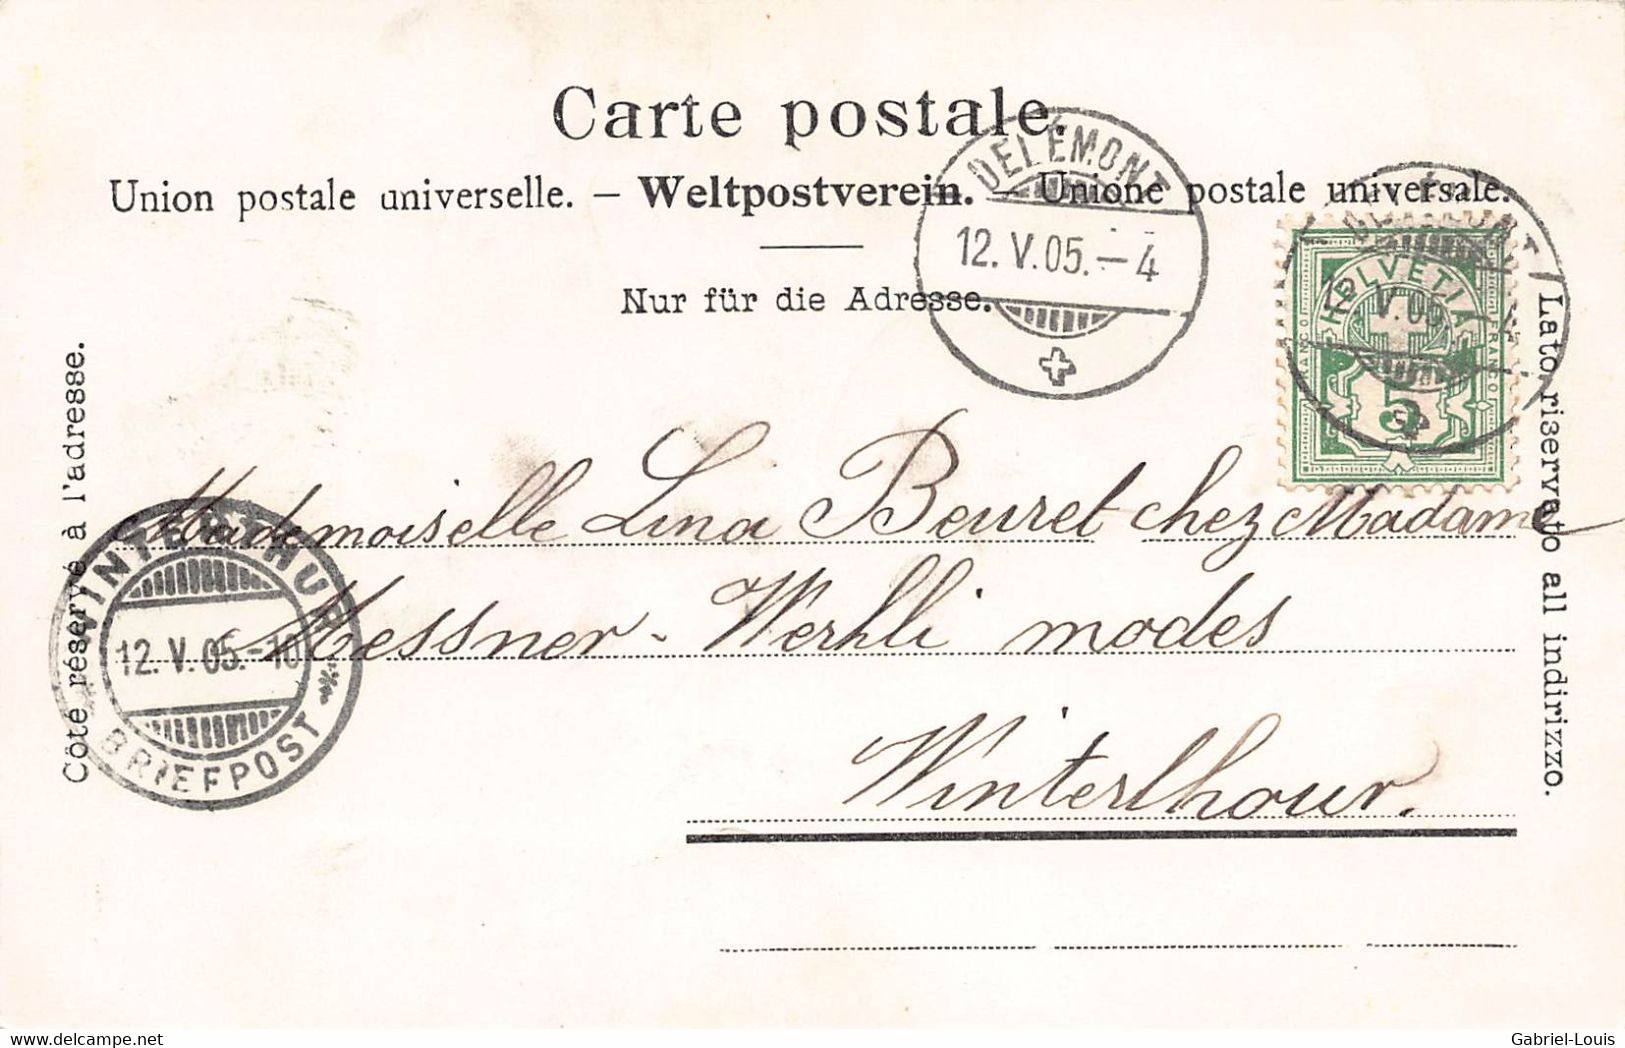 Carte postale.
Union postale universelle. — Weltpostverein. — Unione postale universale.
Nur für die Adresse.
DELÉMONT
12. V. 05. — 4
HELVETIA
FRANCO
FRANCO
5
Côté réservé à l'adresse.
Lato riservato all indirizzo.
Mademoiselle Lina Beuret chez Madame
Messner - Werhli modes
Winterthour.
WINTERTHUR
12. V. 05. - 10
BRIEFPOST
delcampe.net
Gabriel-Louis